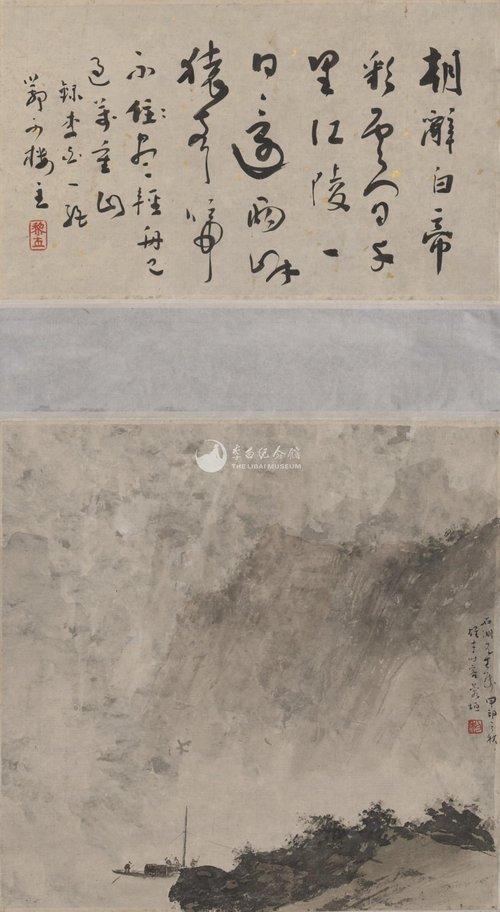 朝辭白帝
彩雲間千
里江陵一
日還兩岸
猿聲啼
不住輕舟已
過萬重山
錄李白一絕
樓主
李白纪念馆
THE LIBAI MUSEUM
甲申之秋